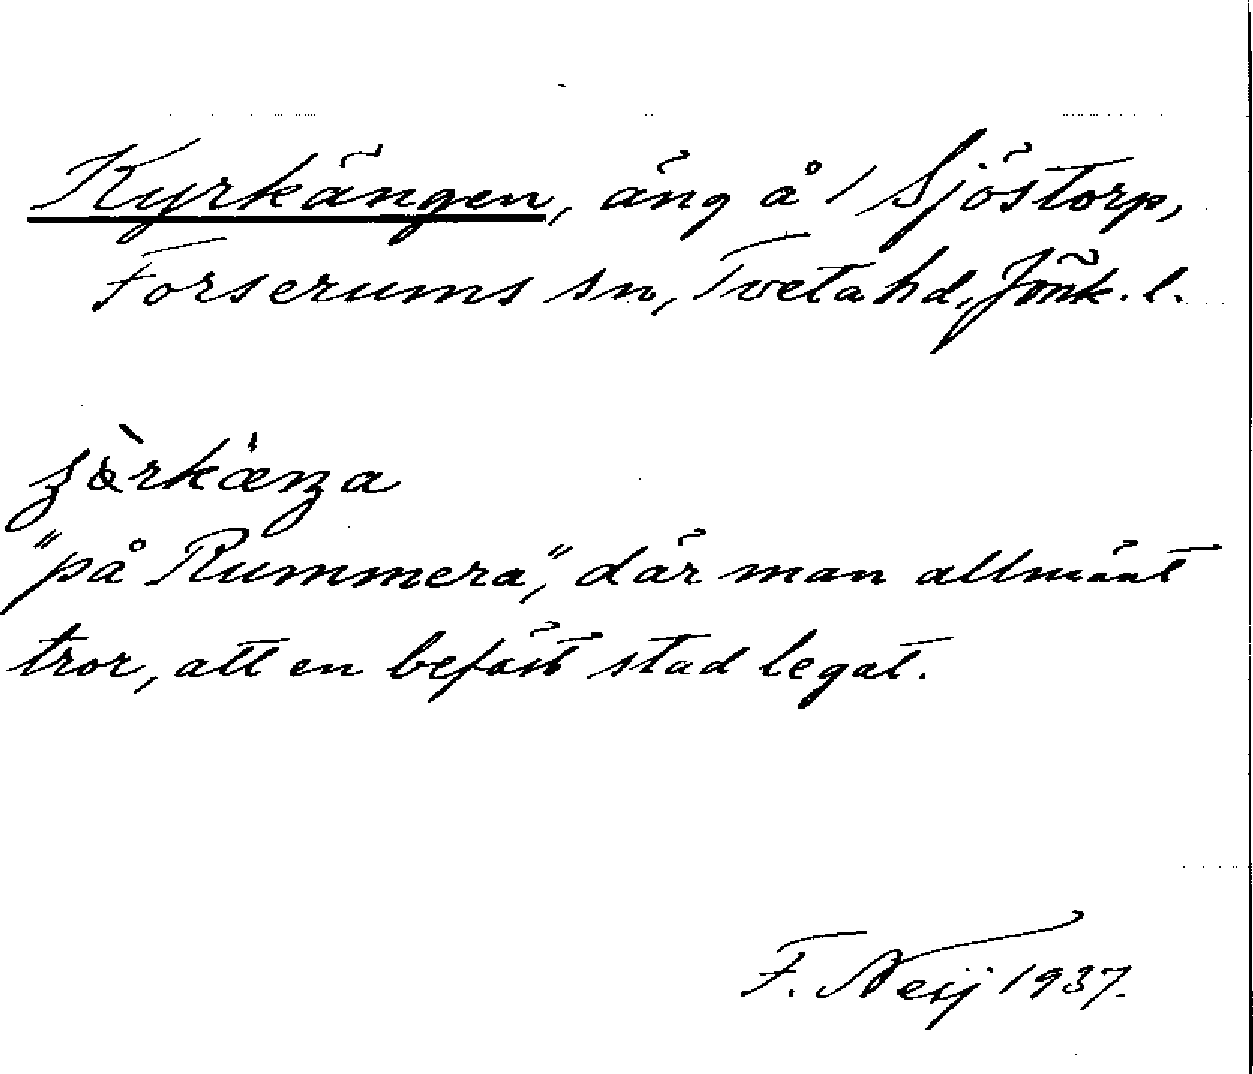 Kyrkängen, äng å 1 Sjöstorp,
Forserums sn, Tveta hd, Jönk. l.
"på Rummera", där man allmänt
tror, att en befäst stad legat.
F. Neij 1937.